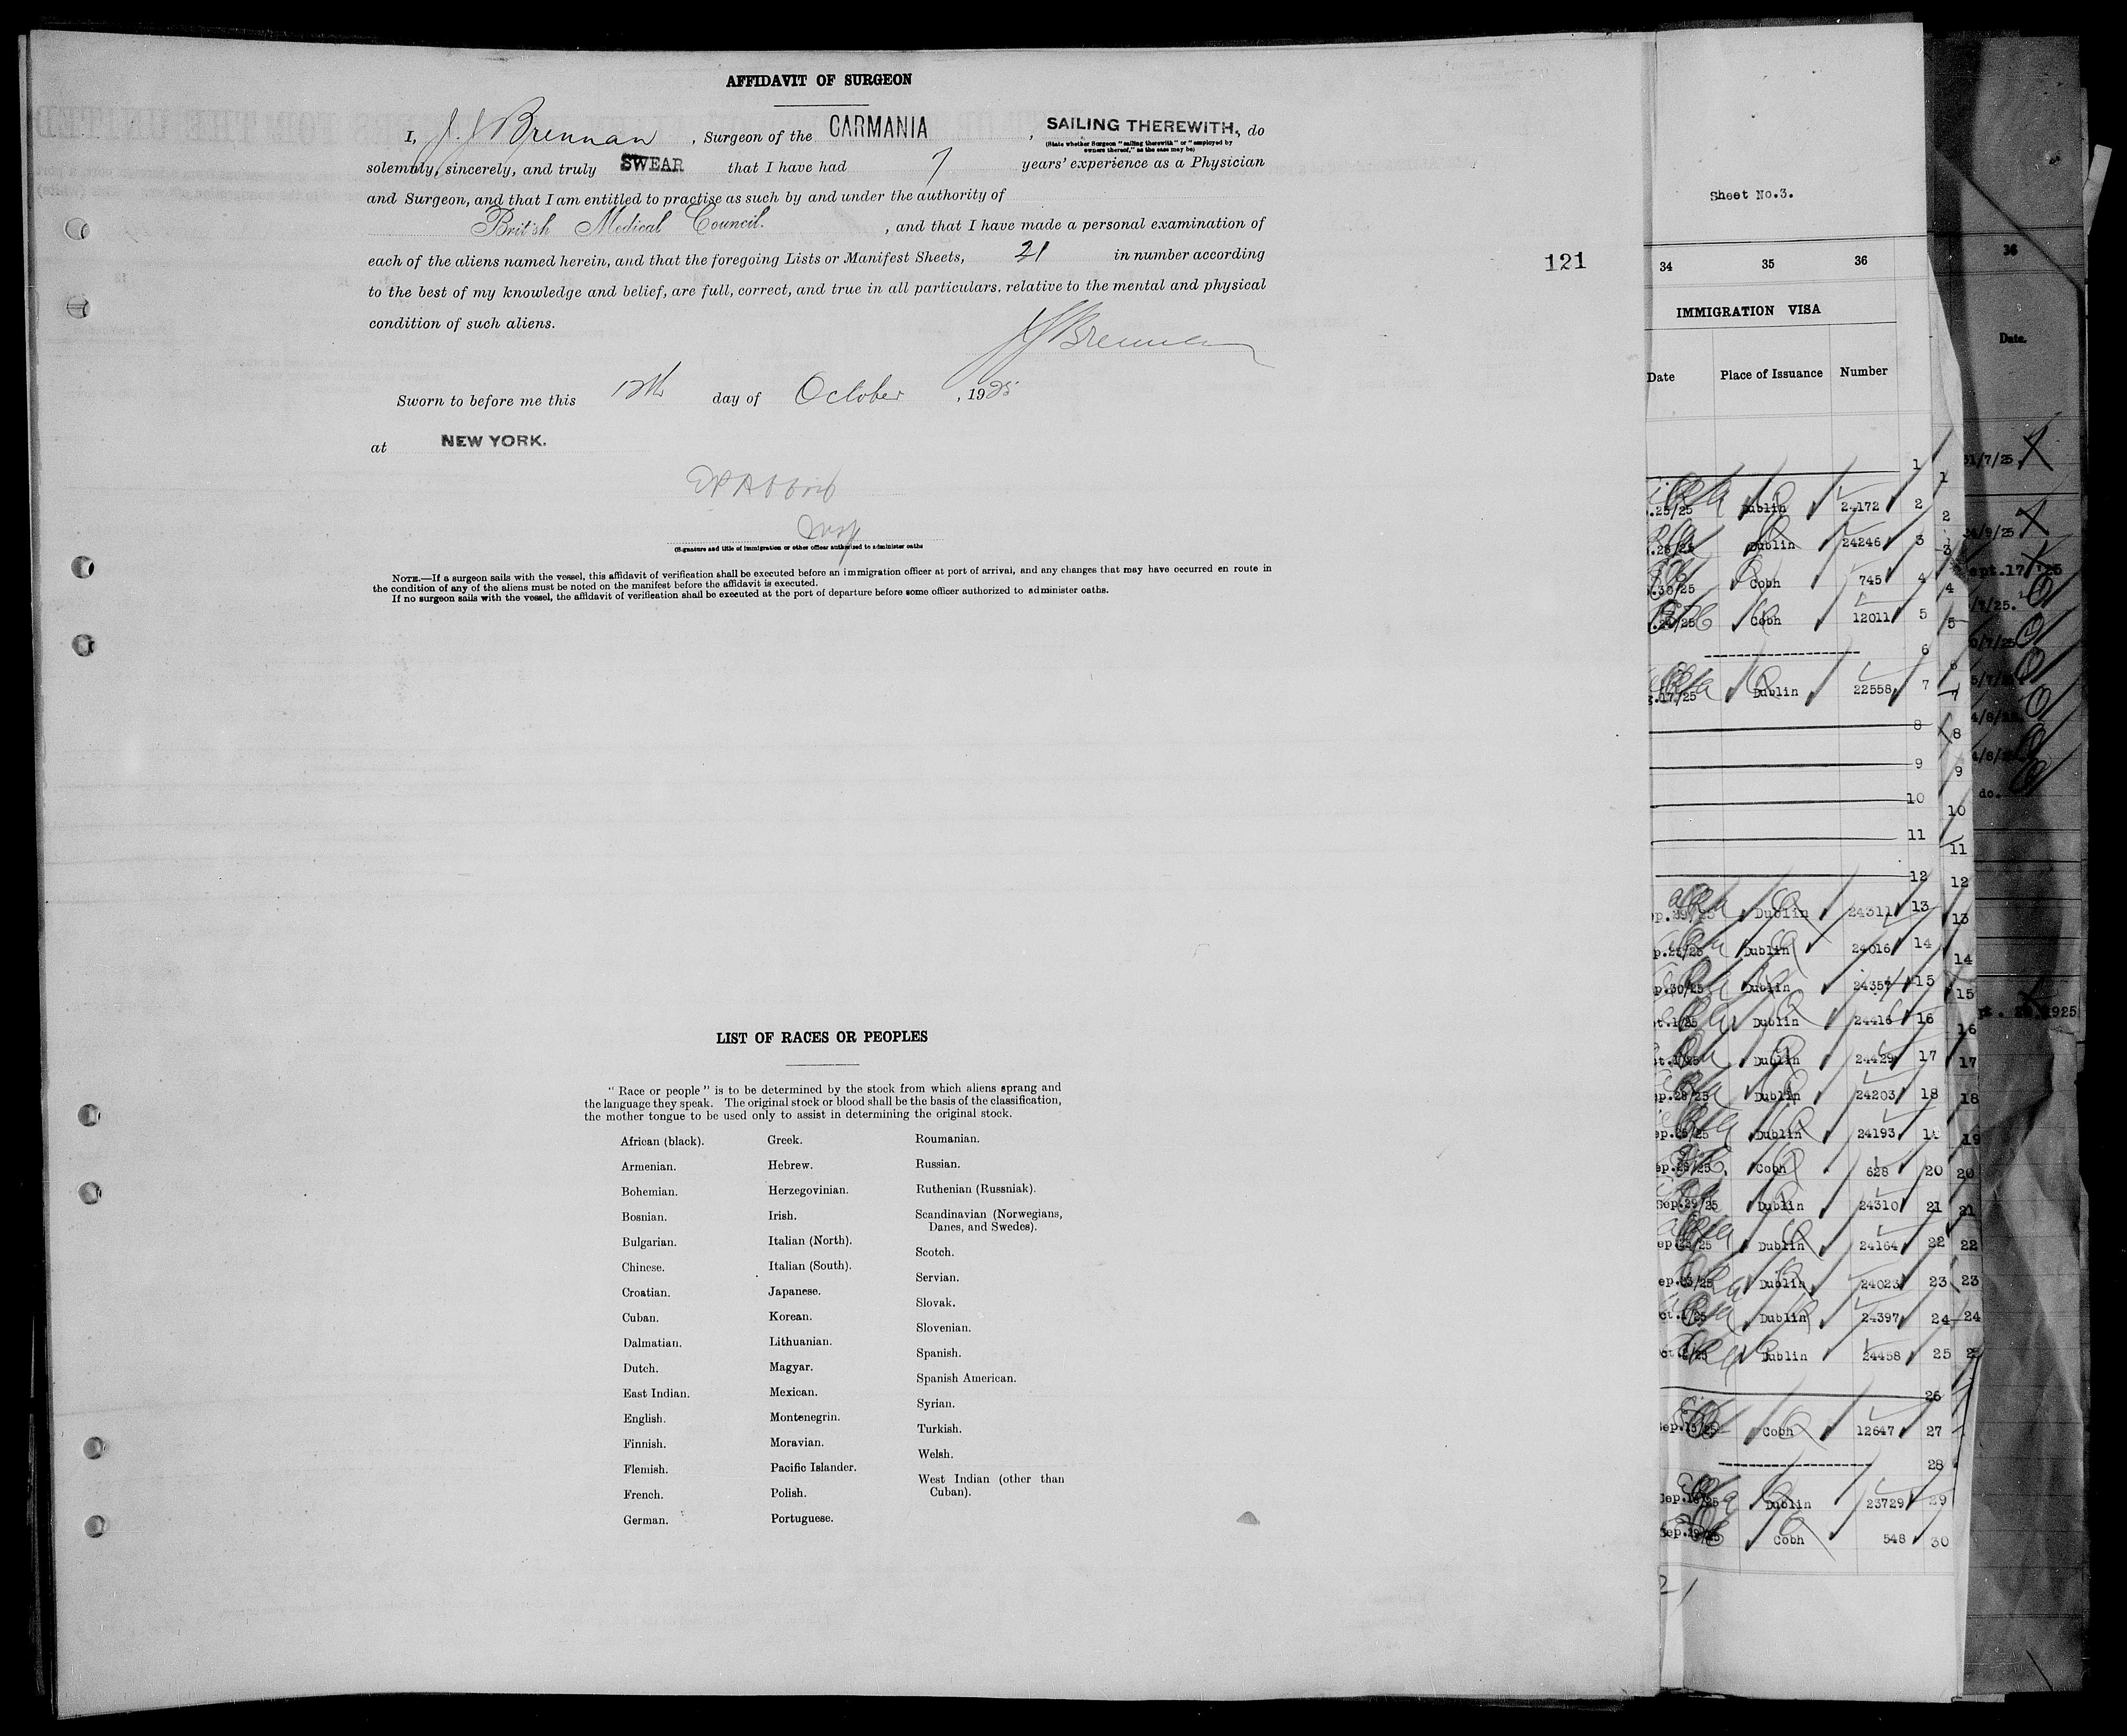 AFFIDAVIT OF SURGEON
I, J. J Brennan, Surgeon of the CARMANIA, SAILING THEREWITH, do
(State whether Surgeon "sailing therewith" or "employed by
owners thereof," as the case may be)
solemnly, sincerely, and truly SWEAR that I have had 7 years' experience as a Physician
and Surgeon, and that I am entitled to practise as such by and under the authority of
British Medical Council. , and that I have made a personal examination of
each of the aliens named herein, and that the foregoing Lists or Manifest Sheets, 21 in number according
to the best of my knowledge and belief, are full, correct, and true in all particulars, relative to the mental and physical
condition of such aliens.
J J Brennan
Sworn to before me this 12th day of October, 1925
at NEW YORK.
Insp
(Signature and title of immigration or other officer authorized to administer oaths
NOTE.—If a surgeon sails with the vessel, this affidavit of verification shall be executed before an immigration officer at port of arrival, and any changes that may have occurred en route in
the condition of any of the aliens must be noted on the manifest before the affidavit is executed.
If no surgeon sails with the vessel, the affidavit of verification shall be executed at the port of departure before some officer authorized to administer oaths.
121
LIST OF RACES OR PEOPLES
"Race or people" is to be determined by the stock from which aliens sprang and
the language they speak. The original stock or blood shall be the basis of the classification,
the mother tongue to be used only to assist in determining the original stock.
African (black).
Armenian.
Bohemian.
Bosnian.
Bulgarian.
Chinese.
Croatian.
Cuban.
Dalmatian.
Dutch.
East Indian.
English.
Finnish.
Flemish.
French.
German.
Greek.
Hebrew.
Herzegovinian.
Irish.
Italian (North).
Italian (South).
Japanese.
Korean.
Lithuanian.
Magyar.
Mexican.
Montenegrin.
Moravian.
Pacific Islander.
Polish.
Portuguese.
Roumanian.
Russian.
Ruthenian (Russniak).
Scandinavian (Norwegians,
Danes, and Swedes).
Scotch.
Servian.
Slovak.
Slovenian.
Spanish.
Spanish American.
Syrian.
Turkish.
Welsh.
West Indian (other than
Cuban).
Sheet No.3.
34 35 36
IMMIGRATION VISA
Date Place of Issuance Number
1
.25/25 Dublin 24172 2
.28/25 Dublin 24246 3
.30/25 Cobh 745 4
.24/25 Cobh 12011 5
6
.17/25 Dublin 22558 7
8
9
10
11
12
p.29/25 Dublin 24311 13
Dublin 24016 14
p.30/25 Dublin 24357 15
t.1/25 Dublin 24416 16
t.1/25 Dublin 24429 17
ep.28/25 Dublin 24203 18
ep.25/25 Dublin 24193 19
ep.25/25 Cobh 628 20
Sep.29/25 Dublin 24310 21
Dublin 24164 22
ep.23/25 Dublin 24023 23
ct.1/25 Dublin 24397 24
Dublin 24458 25
26
Sep.15/25 Cobh 12647 27
28
Dublin 23729 29
Sep.29/25 Cobh 548 30
21
1
2
3
4
5
6
7
8
9
10
11
12
13
14
15
16
17
18
19
20
21
22
23
24
36
Date.
31/7/25
24/9/25
ept.17 '25
do.
1925